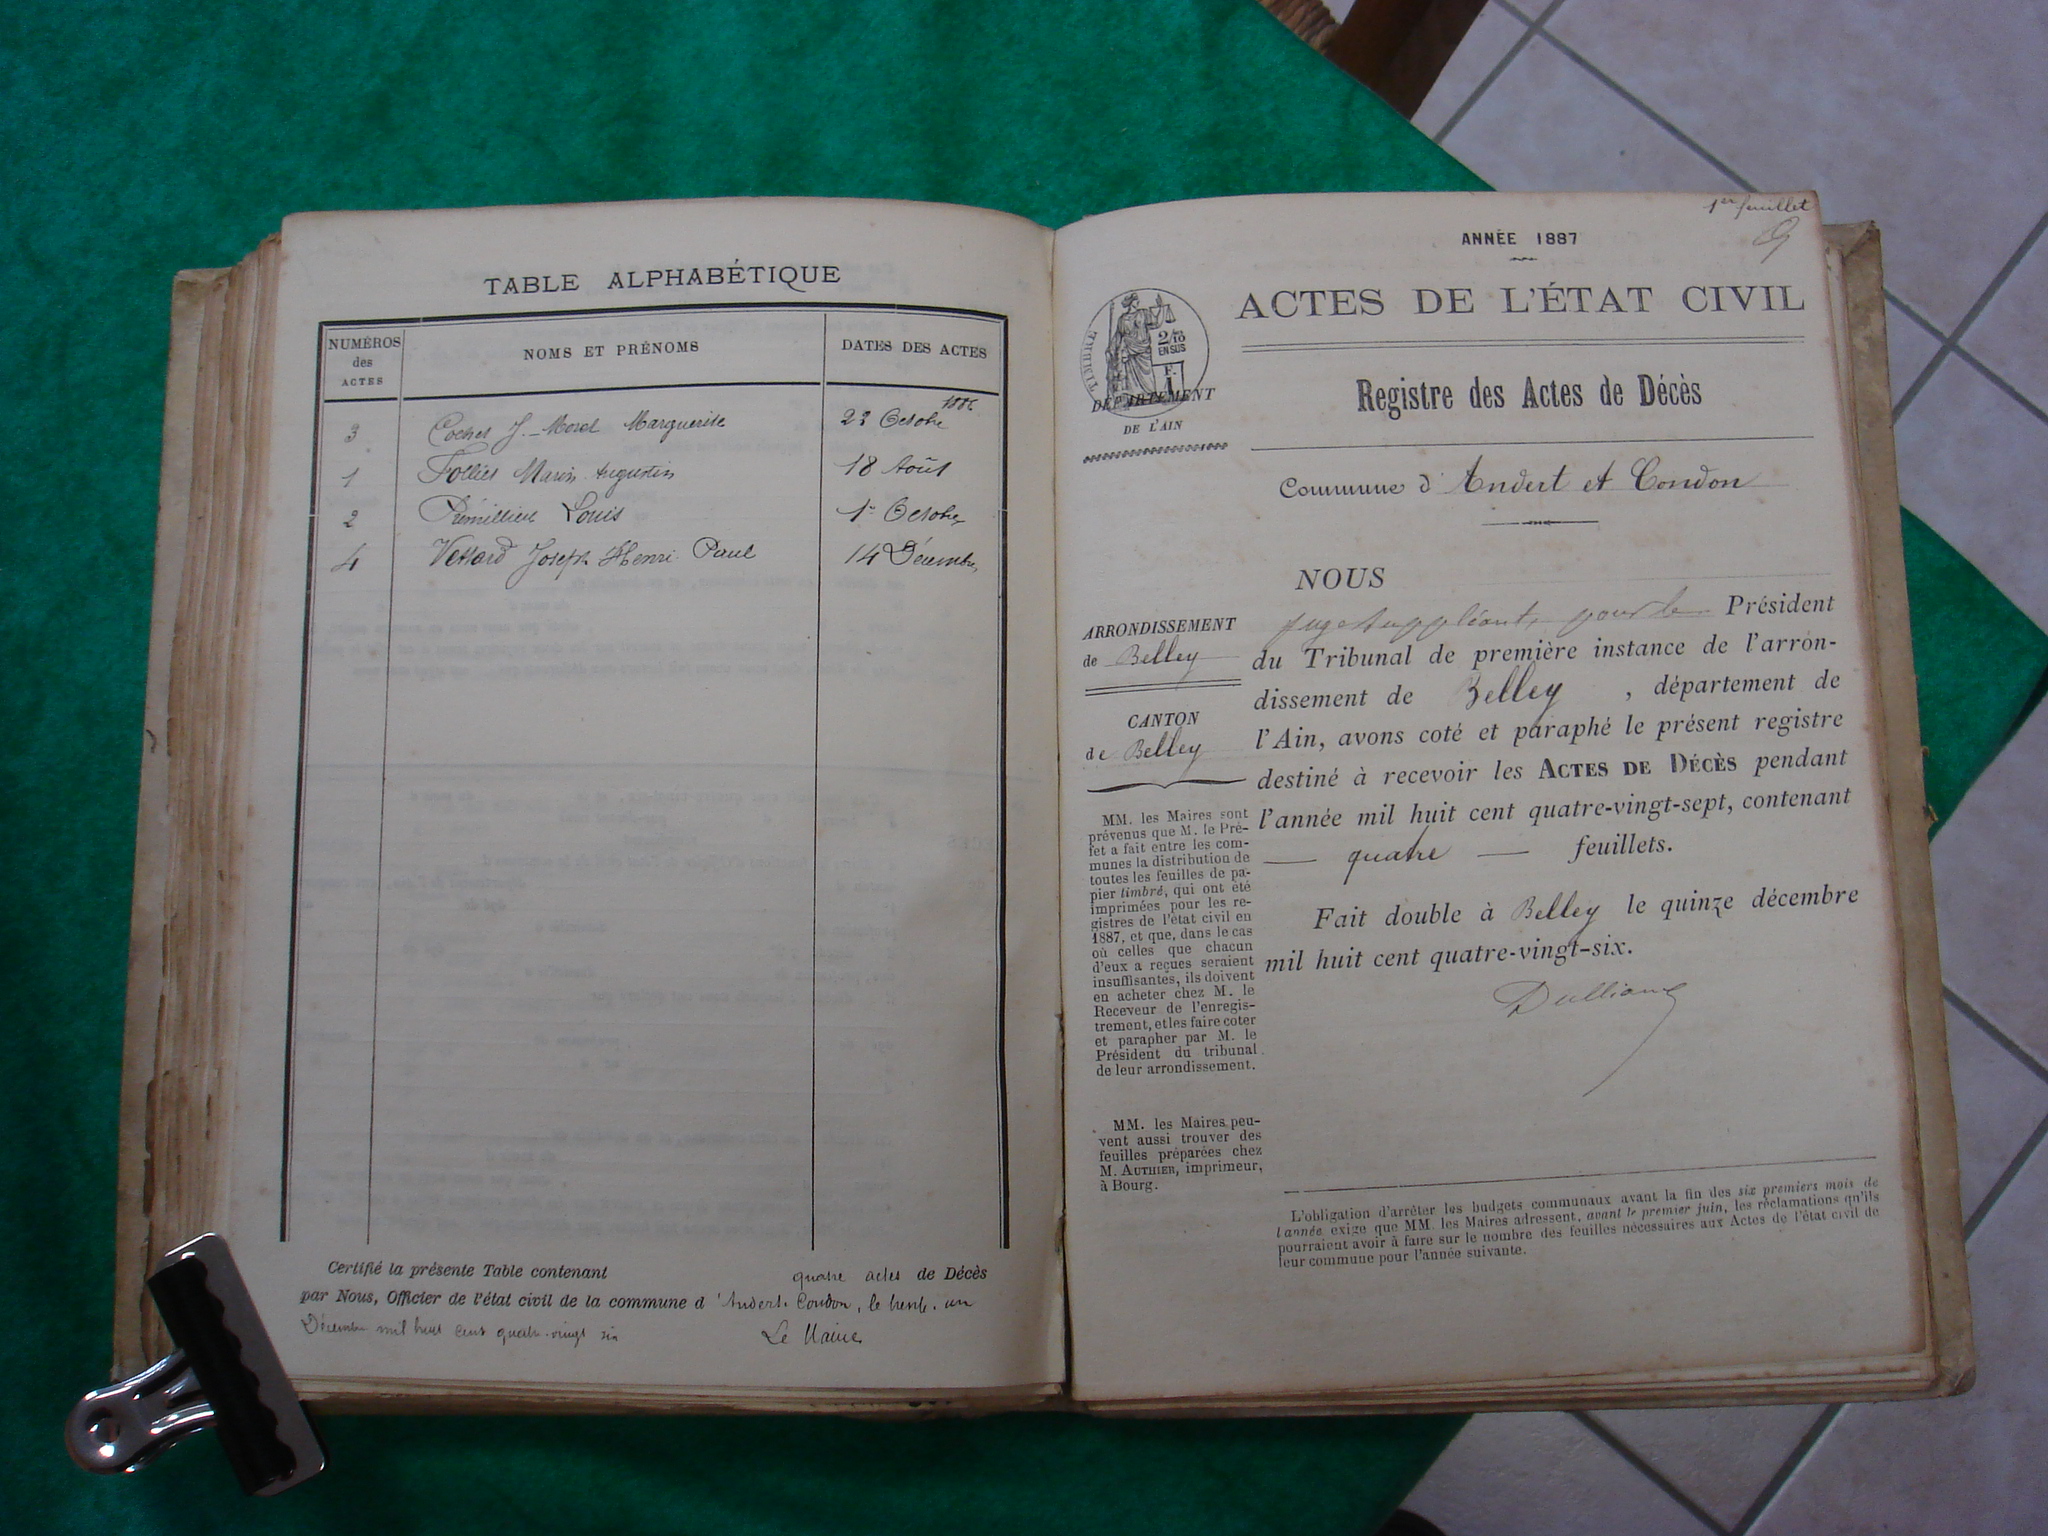 TABLE ALPHABÉTIQUE
NUMÉROS des ACTES NOMS ET PRÉNOMS DATES DES ACTES
1886
3 Cochet J. Morel Marguerite 22 Octobre
1 Folliet Marin Augustin 18 Août
2 Prémillieu Louis 1er Octobre
4 Vettard Joseph Henri Paul 14 Décembre
Certifié la présente Table contenant quatre actes de Décès
par Nous, Officier de l'état civil de la commune d 'Andert-Condon, le trente-un
Décembre mil huit cent quatre-vingt six Le Maire
1er feuillet
ANNÉE 1887
ACTES DE L'ÉTAT CIVIL
TIMBRE
2/10
EN SUS
F.
1
DÉPARTEMENT
DE L'AIN
Registre des Actes de Décès
Commune d'Andert et Condon
ARRONDISSEMENT
de Belley
CANTON
de Belley
MM. les Maires sont
prévenus que M. le Pré-
fet a fait entre les com-
munes la distribution de
toutes les feuilles de pa-
pier timbré, qui ont été
imprimées pour les re-
gistres de l'état civil en
1887, et que, dans le cas
où celles que chacun
d'eux a reçues seraient
insuffisantes, ils doivent
en acheter chez M. le
Receveur de l'enregis-
trement, et les faire coter
et parapher par M. le
Président du tribunal
de leur arrondissement.
MM. les Maires peu-
vent aussi trouver des
feuilles préparées chez
M. AUTHIER, imprimeur,
à Bourg.
NOUS
juge suppléant, pour le Président
du Tribunal de première instance de l'arron-
dissement de Belley , département de
l'Ain, avons coté et paraphé le présent registre
destiné à recevoir les ACTES DE DÉCÈS pendant
l'année mil huit cent quatre-vingt-sept, contenant
— quatre — feuillets.
Fait double à Belley le quinze décembre
mil huit cent quatre-vingt-six.
L'obligation d'arrêter les budgets communaux avant la fin des six premiers mois de
l'année exige que MM. les Maires adressent, avant le premier juin, les réclamations qu'ils
pourraient avoir à faire sur le nombre des feuilles nécessaires aux Actes de l'état civil de
leur commune pour l'année suivante.